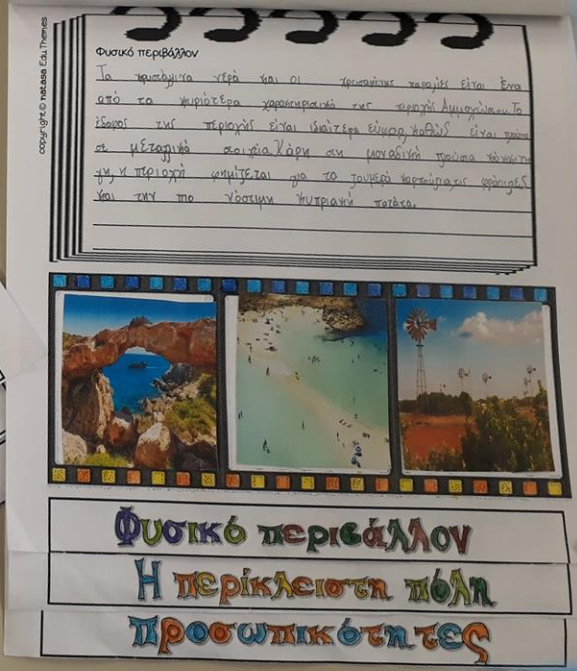 copyright © natasa Edu Themes
Φυσικό περιβάλλον
Τα κρυστάλλινα νερά και οι χρυσαφένιες παραλίες είναι ένα
από τα κυριότερα χαρακτηριστικά της περιοχής Αμμοχώστου. Το
έδαφος της περιοχής είναι ιδιαίτερα εύφορ, καθώς είναι
σε μεταλλικά στοιχεία. Χάρη στη μοναδική
γη, η περιοχή φημίζεται για τα ζουμερά καρπούζια, τις φράουλες
και την πιο νόστιμη κυπριακή πατάτα.
Φυσικό περιβάλλον
Η περίκλειστη πόλη
Προσωπικότητες